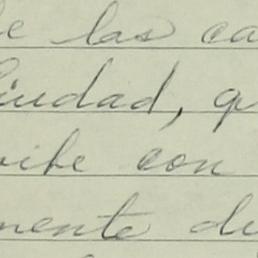 e las ca
iudad, q
con
mente de